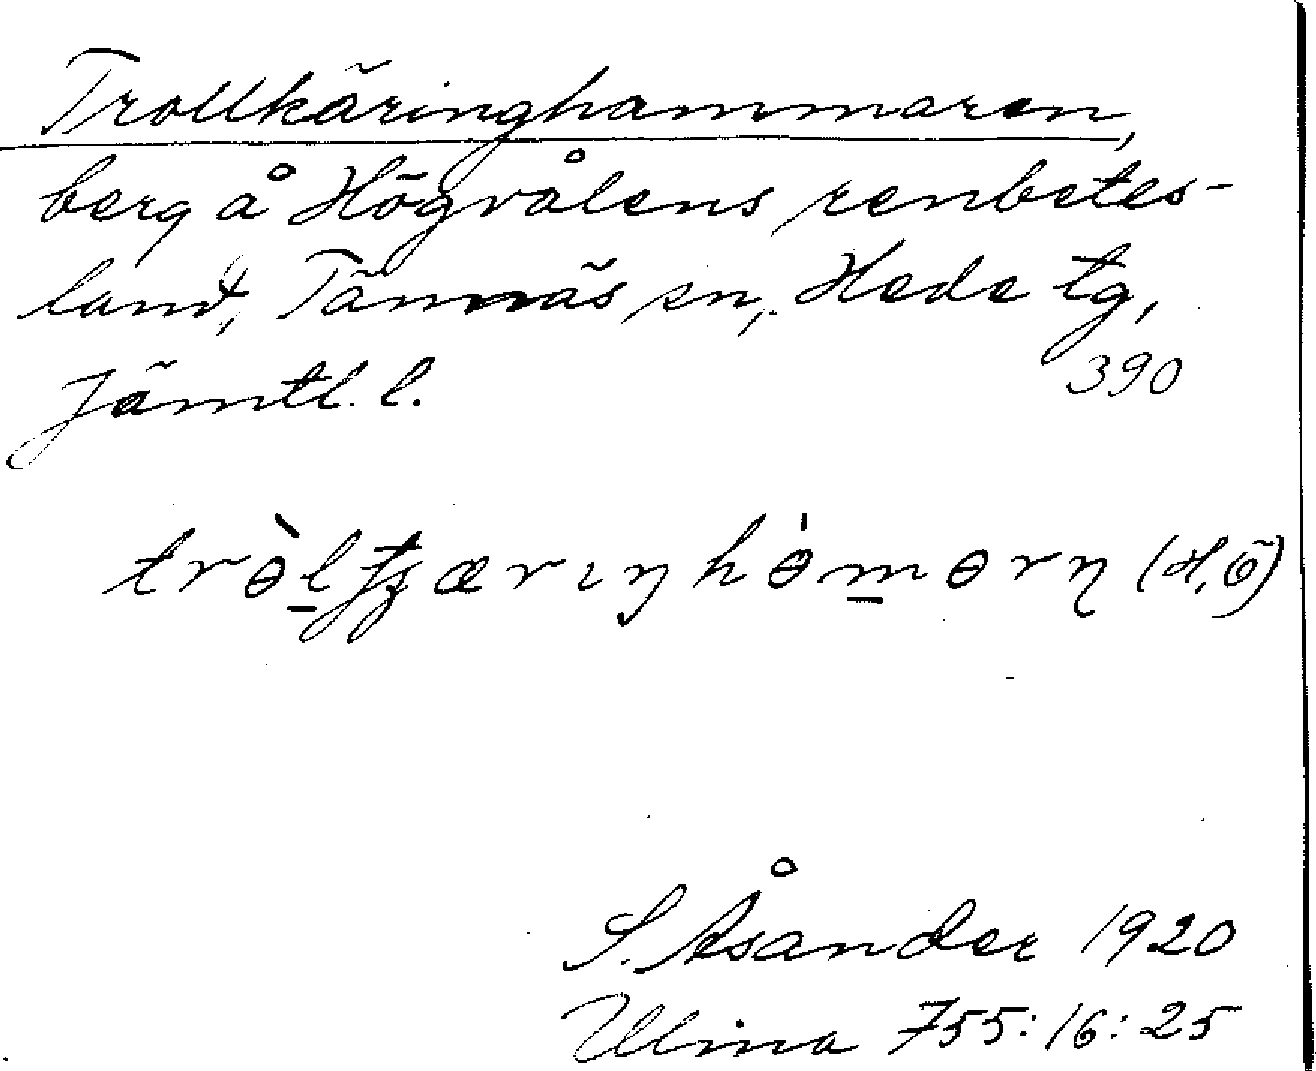 Trollkäringhammaren,
berg å Högvålens renbetes-
land, Tännäs sn, Hede tg,
Jämtl. l.
390
(H, Ö)
S. Åsander 1920
Ulma 755:16:25